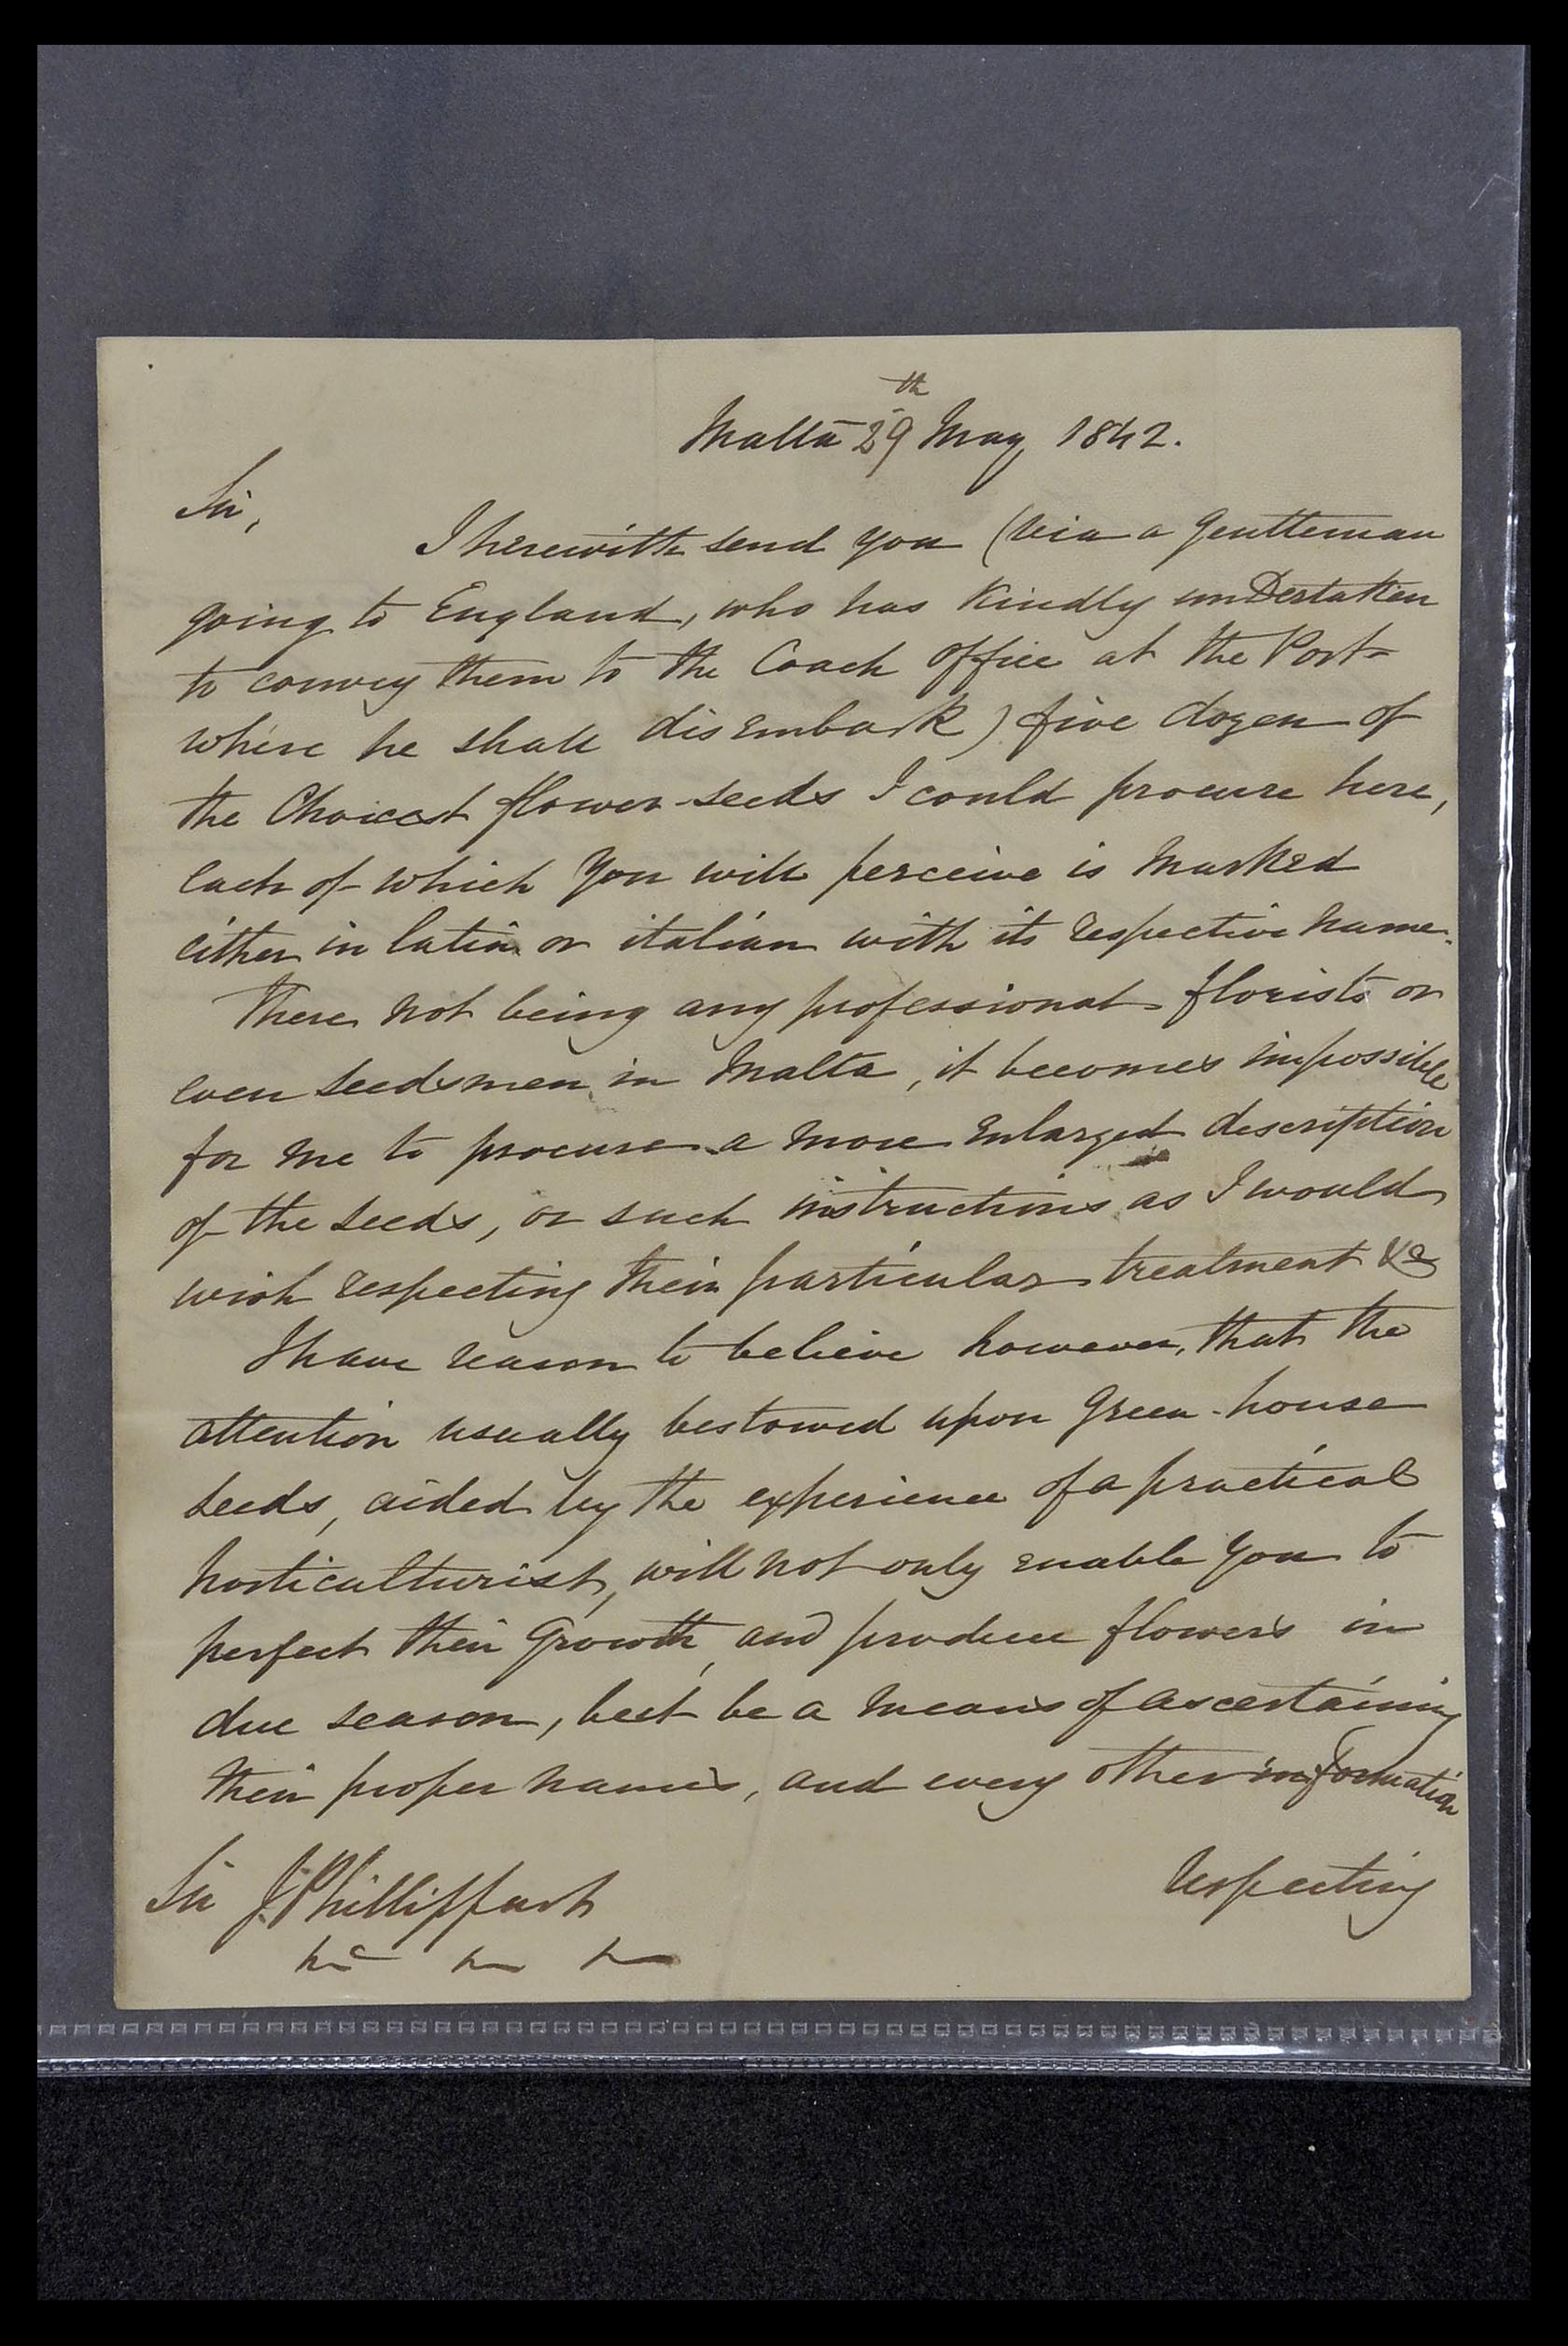 Malta 29th May 1842.
Sir,
I herewith send you (via a gentleman
going to England, who has kindly unDertaken
to convey them to the Coach office at the Port
where he shall disembark) five dozen of
the Choicest flower-seeds I could procure here,
each of which you will perceive is marked
either in latin or italian with its respective name.
There not being any professional florists or
even seedsmen in Malta, it becomes impossible
for me to procure a more enlarged description
of the seeds, or such instructions as I would
wish respecting their particular treatment &c
I have reason to believe however, that the
attention usually bestowed upon green-house
seeds, aided by the experience of a practical
horticulturist, will not only enable you to
perfect their growth, and produce flowers in
due season, but be a means of ascertaining
their proper names, and every other information
respecting
Sir J. Phillippart